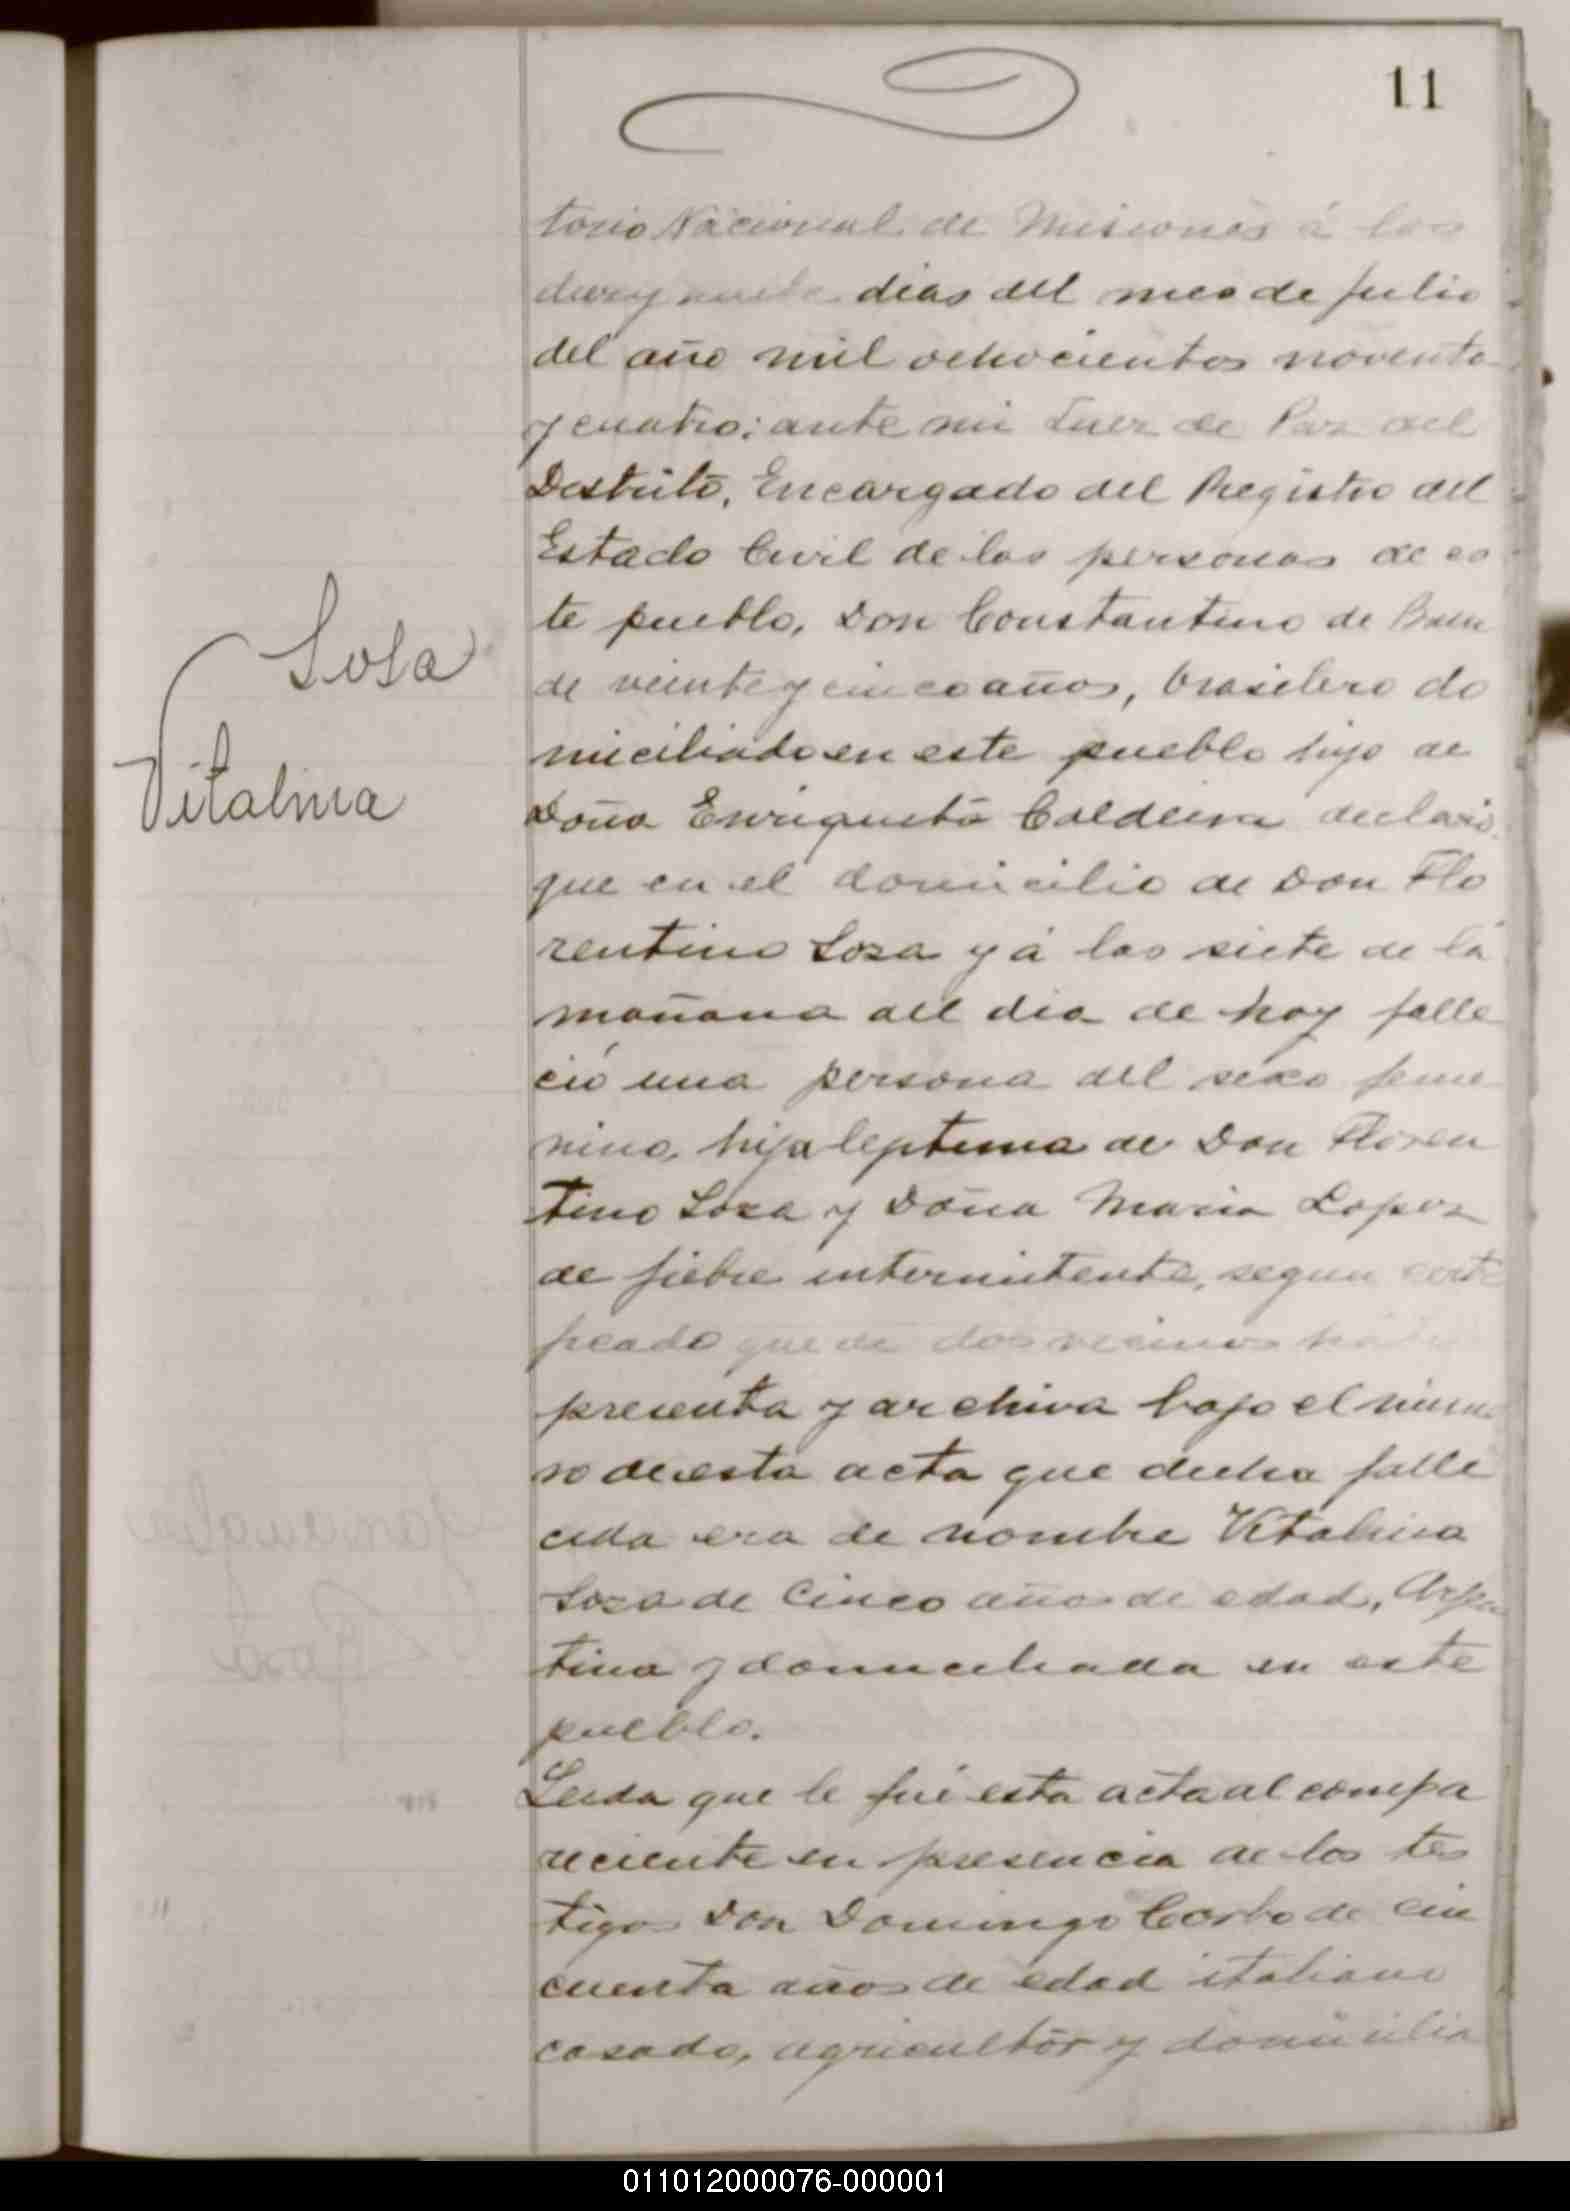 11
torio Nacional de Misiones á los
diez y nueve dias del mes de Julio
del año mil ochocientos noventa
y cuatro; ante mi Juez de Paz del
Distrito, Encargado del Registro del
Estado Civil de las personas de es
te pueblo, Don Constantino de
de veinte y cinco años, brasilero do
miciliado en este pueblo hijo de
Doña Enriqueta Caldeira declaró
que en el domicilio de Don Flo
rentino Soza y á las siete de la
mañana del dia de hoy falle
ció una persona del sexo feme
nino, hija leptima de Don Floren
tino Soza y Doña Maria Lopez
de fiebre intermitente, segun certi
ficado que de dos vecinos
presenta y archiva bajo el nume
ro de esta acta que dicha falle
cida era de nombre Vitalina
Soza de Cinco años de edad, Argen
tina y domiciliada en este
pueblo.
Leida que le fué esta acta al compa
reciente en presencia de los tes
tigos Don Domingo Corbo de cin
cuenta años de edad italiano
casado, agricultor y domicilia
Sosa
Vitalina
011012000076-000001